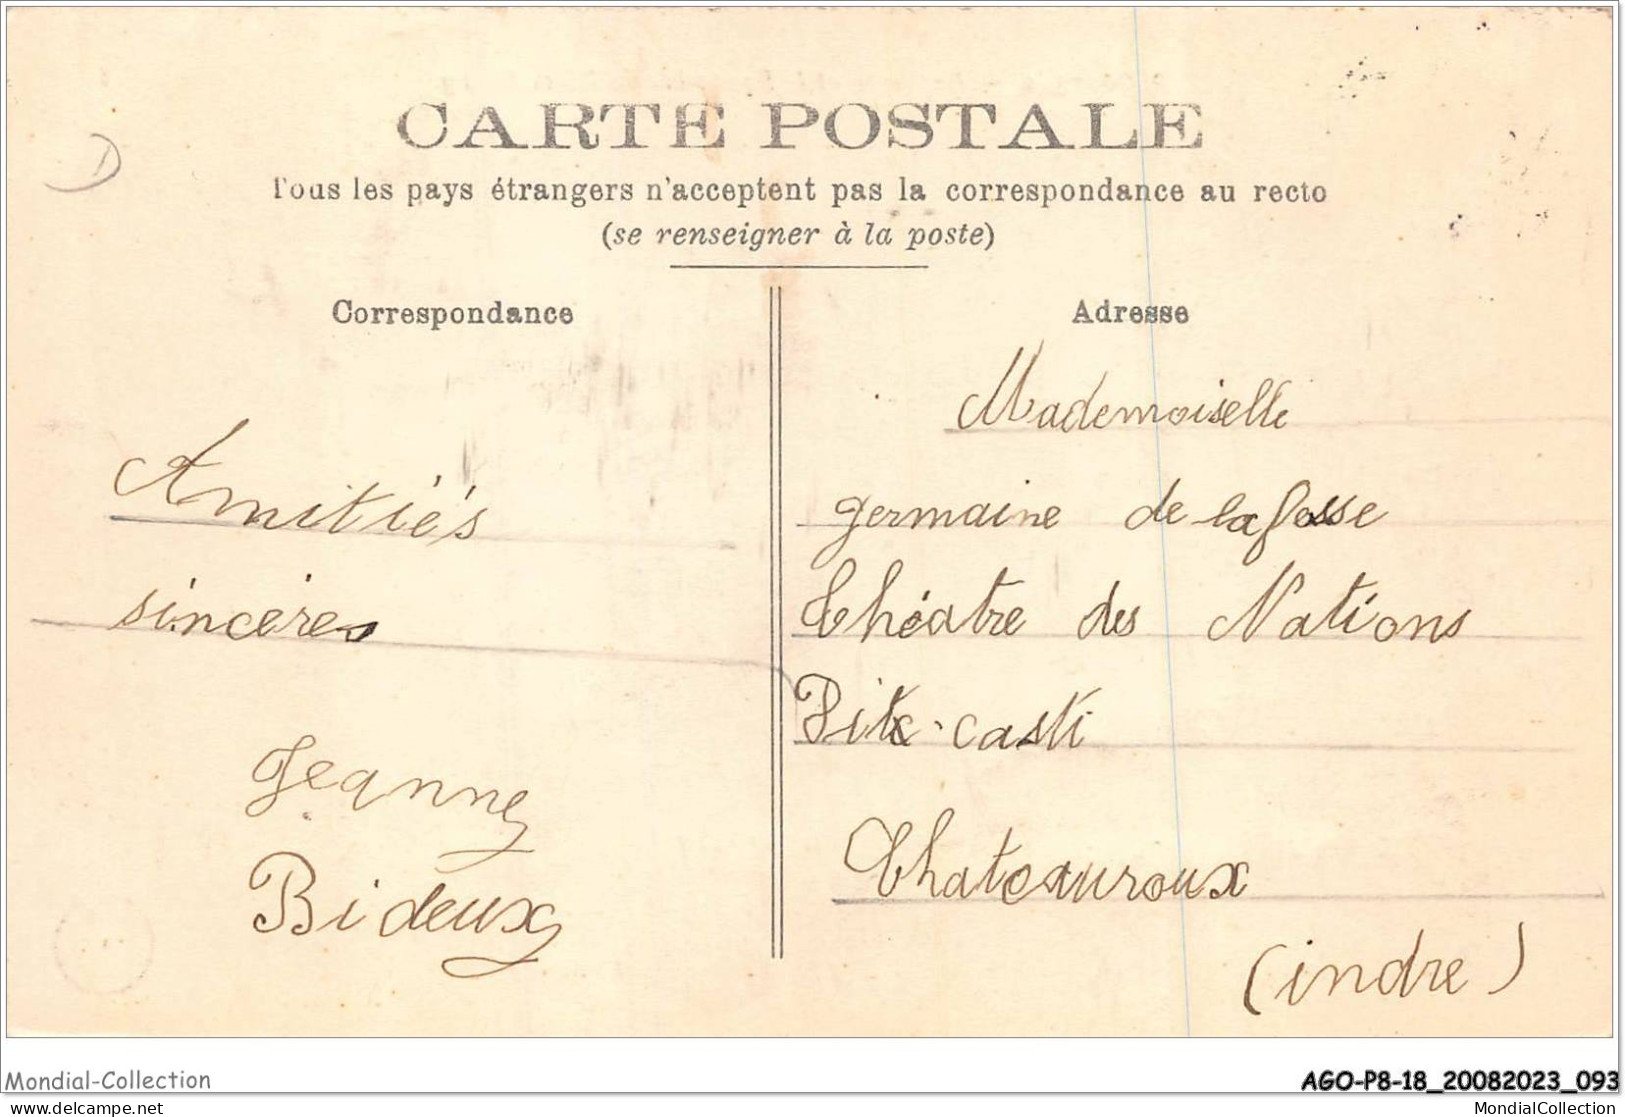 CARTE POSTALE
Tous les pays étrangers n'acceptent pas la correspondance au recto
(se renseigner à la poste)
Correspondance
Amitiés
sincères
Jeanne
Bideux
Adresse
Mademoiselle
germaine de lafosse
théâtre des Nations
Chateauroux
(indre)
D
Mondial-Collection
AGO-P8-18_20082023_093
delcampe.net
MondialCollection